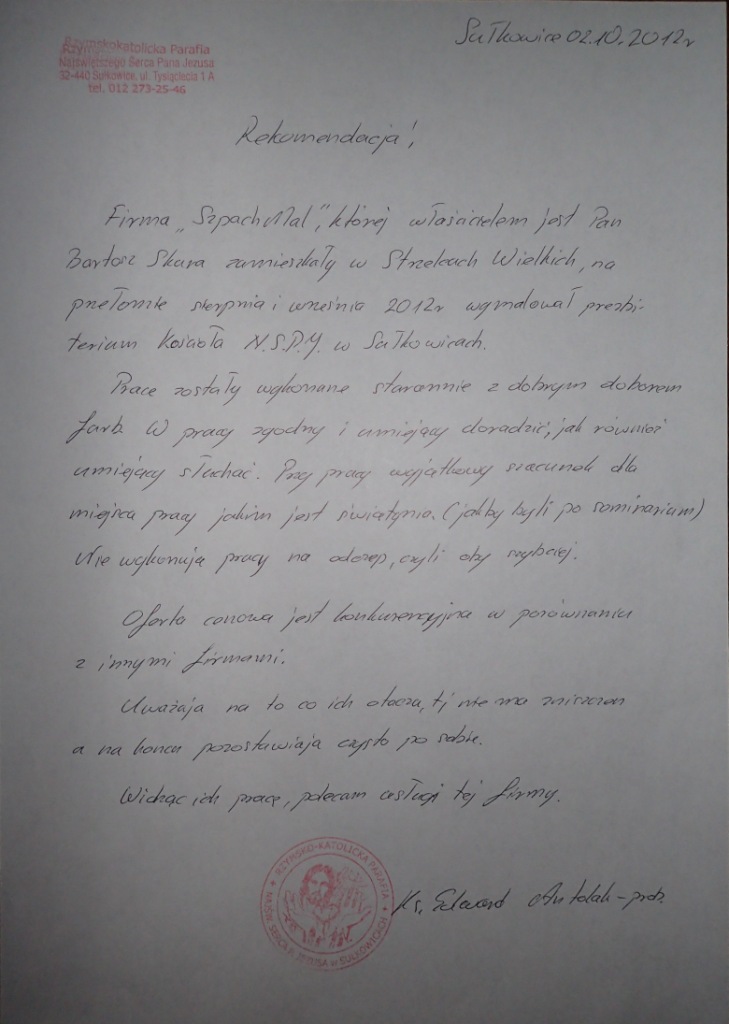 Sułkowice 02.10.2012r
Rzymskokatolicka Parafia
Najświętszego Serca Pana Jezusa
32-440 Sułkowice, ul. Tysiąclecia 1 A
tel. 012 273-25-46
Rekomendacja!,
Firma „SzpachMal", której właścicielem jest Pan
Bartosz Skara zamieszkały w Strzelcach Wielkich, na
przełomie sierpnia i września 2012r wymalował prezbi-
terium Kościoła N.S.P.J. w Sułkowicach.
Prace zostały wykonane starannie z dobrym doborem
farb. W pracy zgodny i umiejący doradzić, jak również
umiejący słuchać. Przy pracy wyjątkowy szacunek dla
miejsca pracy jakim jest świątynia. (jakby byli po seminarium)
Nie wykonują pracy na odczep, czyli aby szybciej.
Oferta cenowa jest konkurencyjna w porównaniu
z innymi firmami.
Uważają na to co ich otacza, tj nie ma zniszczeń
a na końcu pozostawiają czysto po sobie.
Widząc ich pracę, polecam usługi tej firmy.
RZYMSKO-KATOLICKA PARAFIA
NAJŚW. SERCA P. JEZUSA w SUŁKOWICACH
Ks. Edward Antolak - prob.